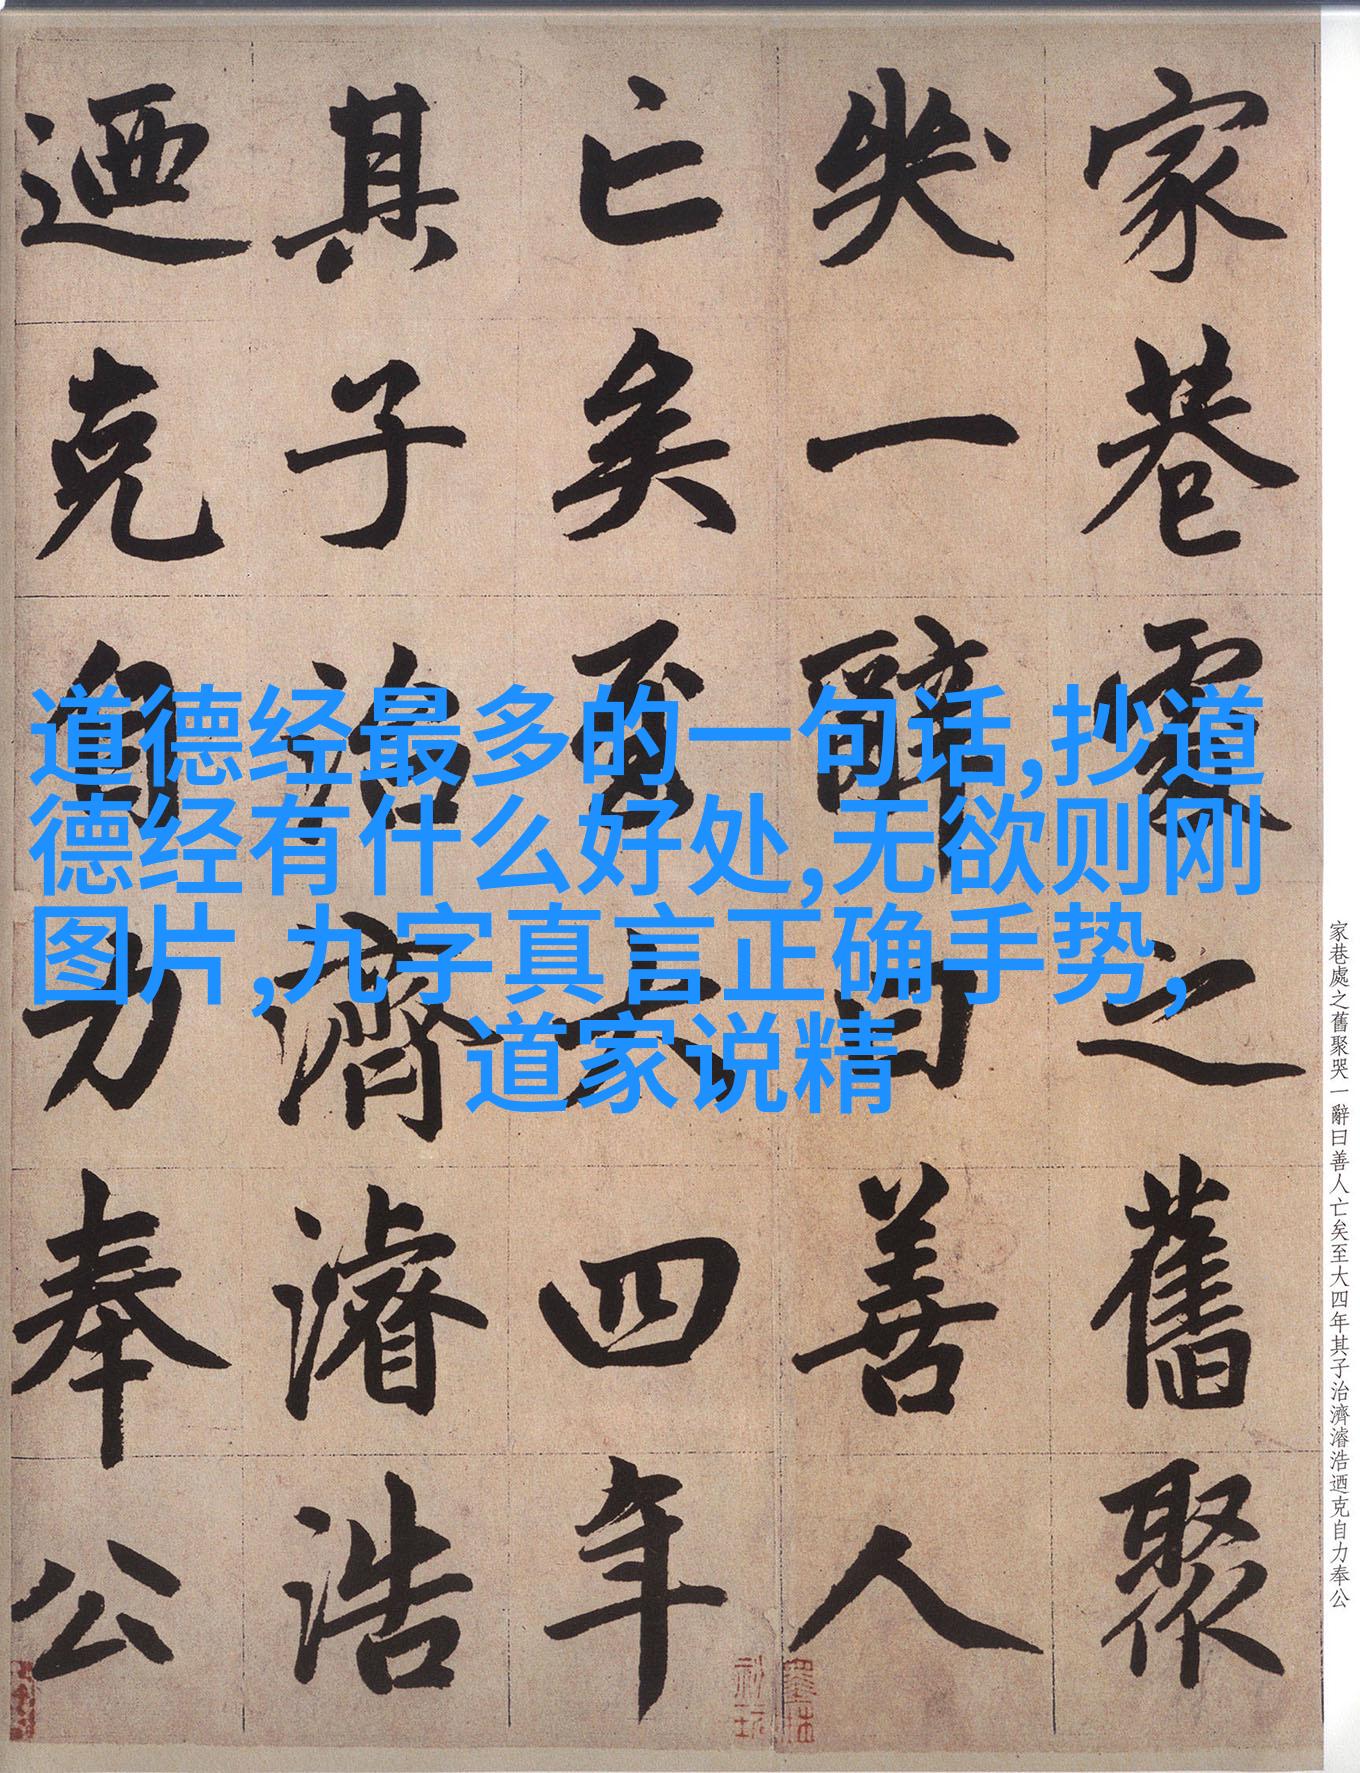 家巷處之舊聚
哭一辭曰善人
亡矣至大四年
其子治濟濬浩
迺克自力奉公
道德经最多的一句话,抄道
德经有什么好处,无欲则刚
图片,九字真言正确手势,
道家说精
家巷處之舊聚哭一辭曰善人亡矣至大四年其子治濟濬浩迺克自力奉公